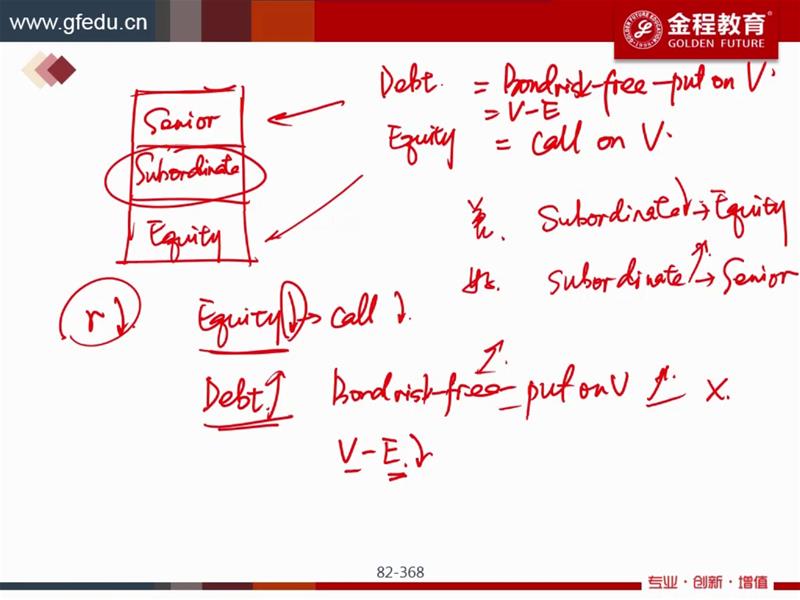 www.gfedu.cn
金程教育
GOLDEN FUTURE
Senior
Subordinate
Equity
Debt = Bond risk-free - put on V.
= V-E
Equity = call on V.
差. Subordinate↓→Equity
好. Subordinate↑→Senior
r↓
Equity↓→ call↓.
Debt↑ Bond risk-free↑ - put on V↑ X.
V-E↓
82-368
专业·创新·增值